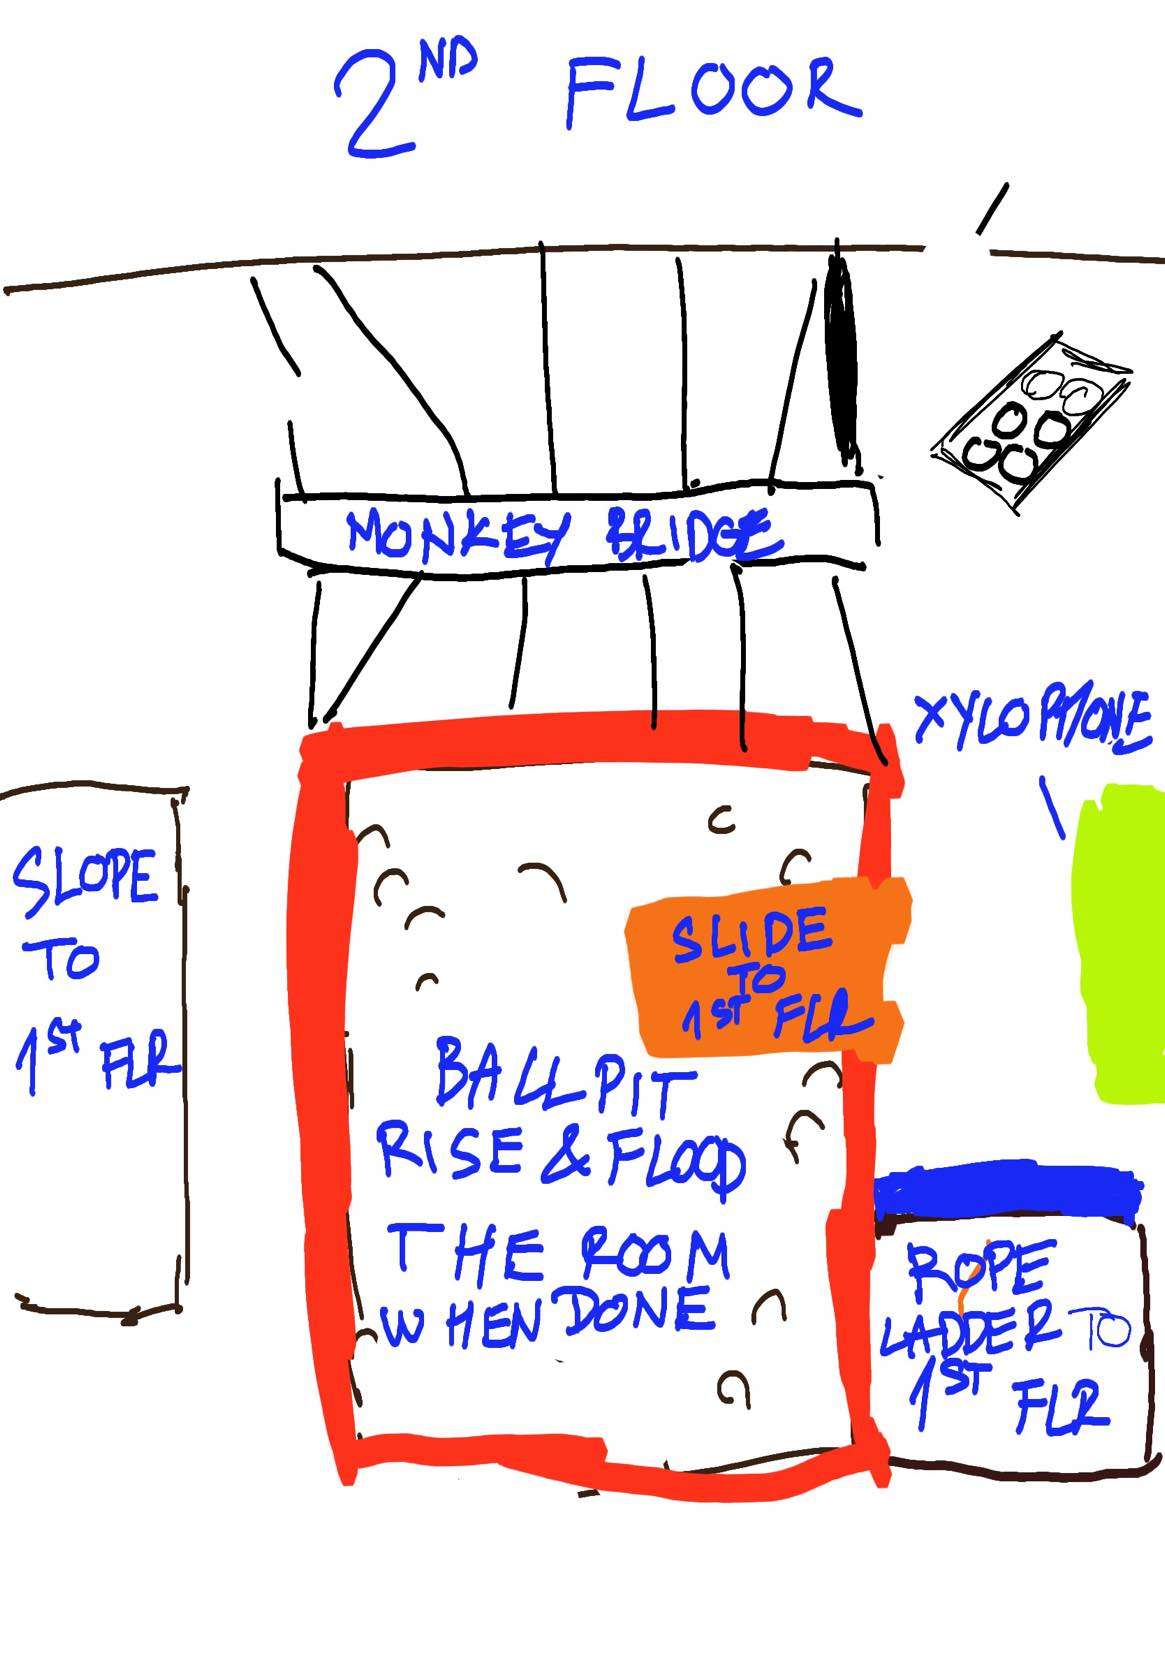 2ND FLOOR
MONKEY BRIDGE
XYLOPHONE
SLOPE
TO
1ST FLR
SLIDE
TO
1ST FLR
BALLPIT
RISE & FLOOD
THE ROOM
WHEN DONE
ROPE
LADDER TO
1ST FLR